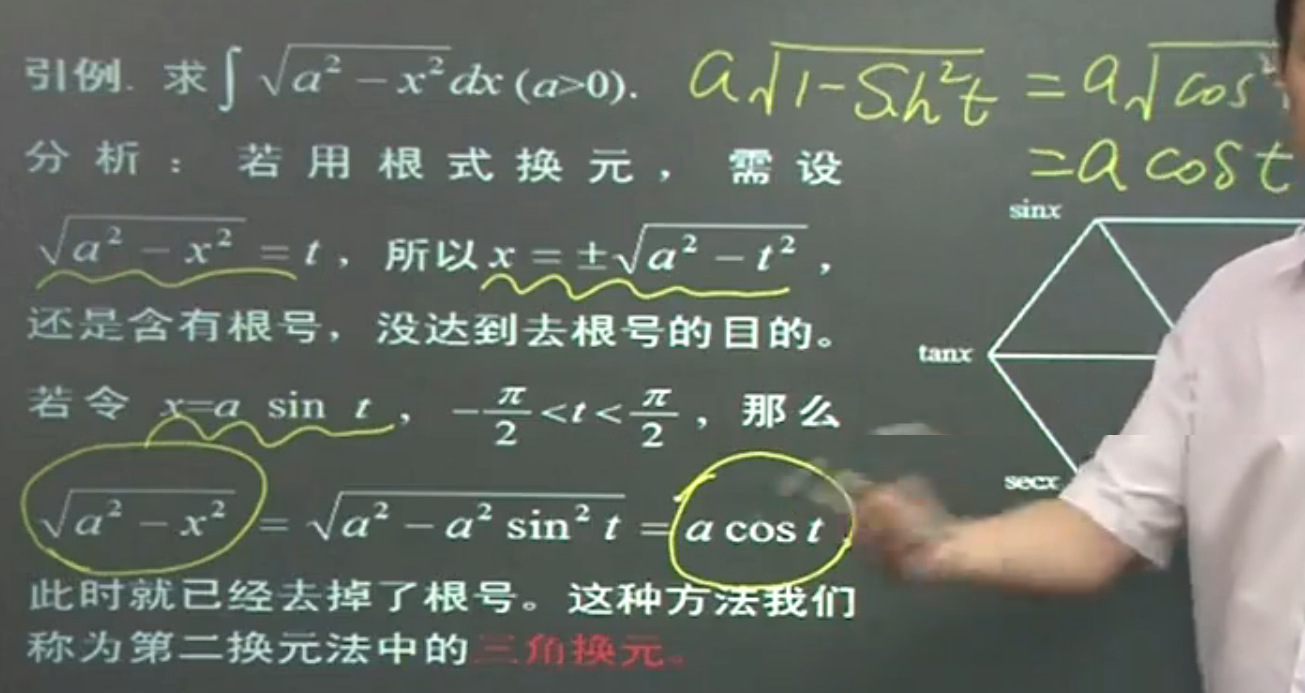 引例. 求∫√(a² − x²)dx (a>0).
分析：若用根式换元，需设
√(a² − x²) = t，所以 x = ±√(a² − t²)，
还是含有根号，没达到去根号的目的。
若令 x=a sin t，−π/2 < t < π/2，那么
√(a² − x²) = √(a² − a² sin² t) = a cos t
此时就已经去掉了根号。这种方法我们
称为第二换元法中的三角换元。
a√(1−Sin²t) = a√(cos²
= a cos t
sinx
tanx
secx